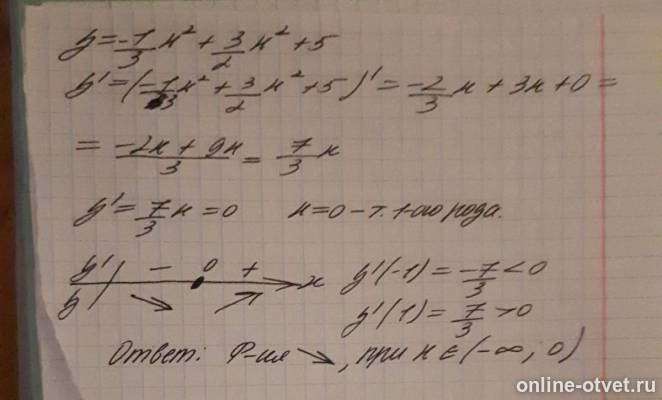 y = -1/3 x² + 3/2 x² + 5
y' = (-1/3 x² + 3/2 x² + 5)' = -2/3 x + 3x + 0 =
= (-2x + 9x)/3 = 7/3 x
y' = 7/3 x = 0    x = 0 – т. 1-ого рода.
y' | − 0 + x    y'(-1) = -7/3 < 0
y | ↘ ↗    y'(1) = 7/3 > 0
Ответ: Ф-ия ↘, при x ∈ (-∞; 0)
online-otvet.ru